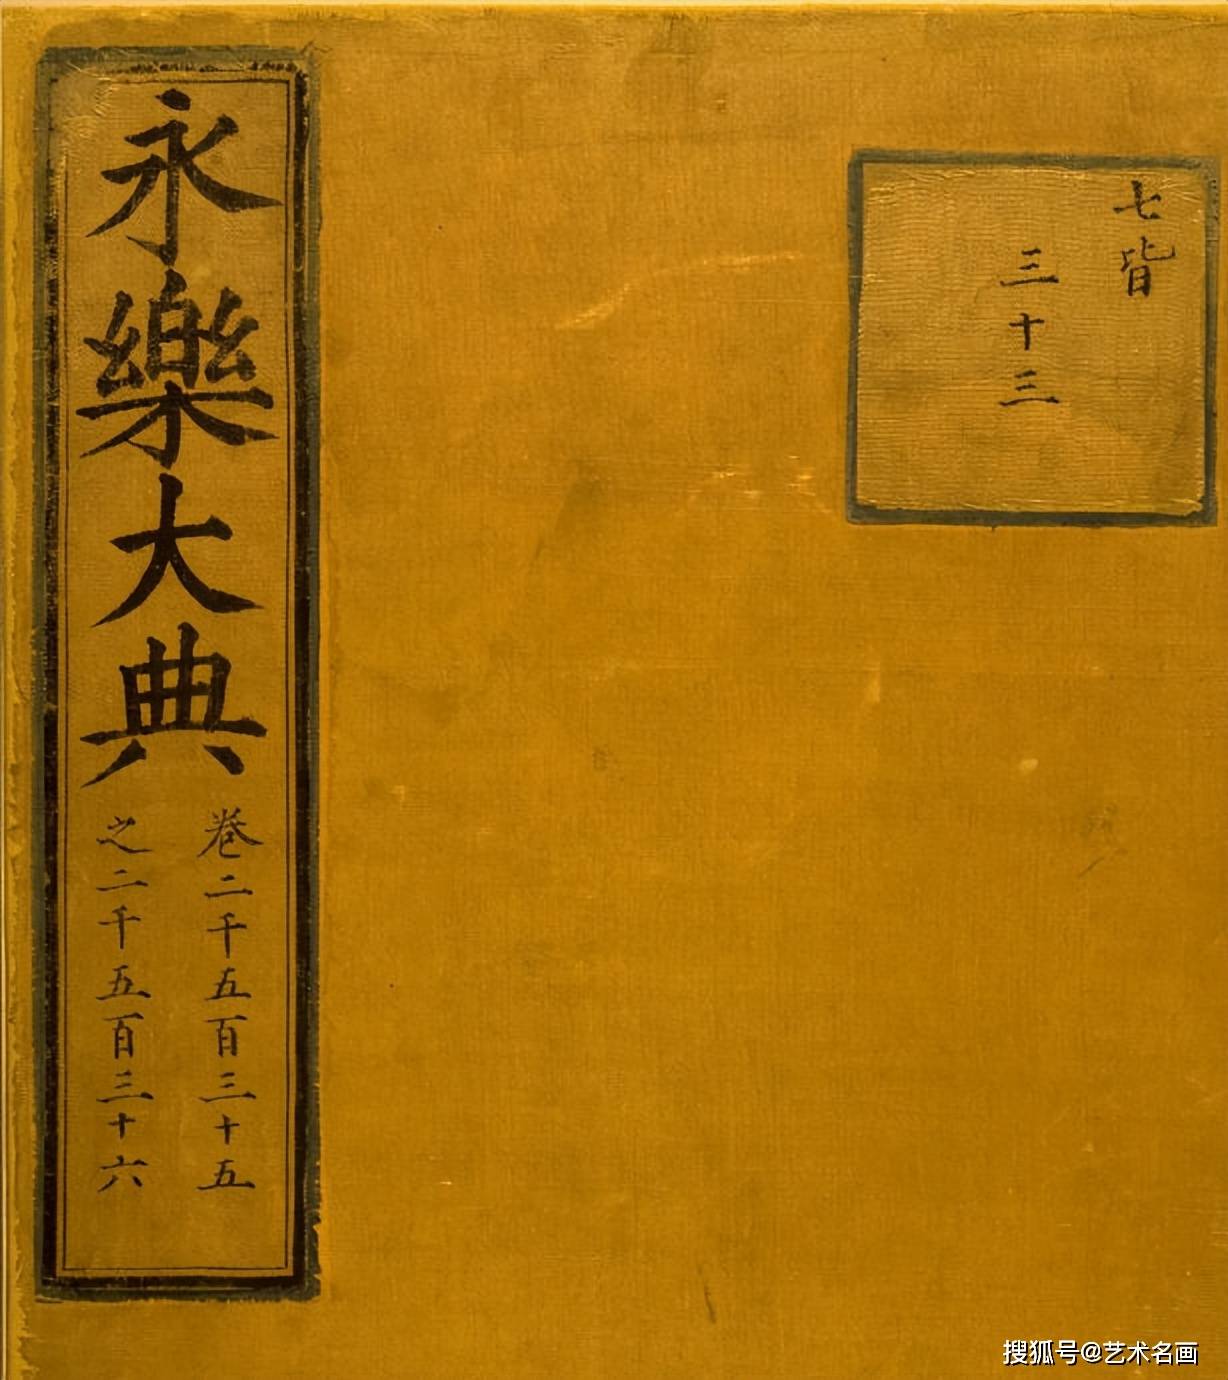 七皆
三十三
永樂大典
卷二千五百三十五
之二千五百三十六
搜狐号@艺术名画